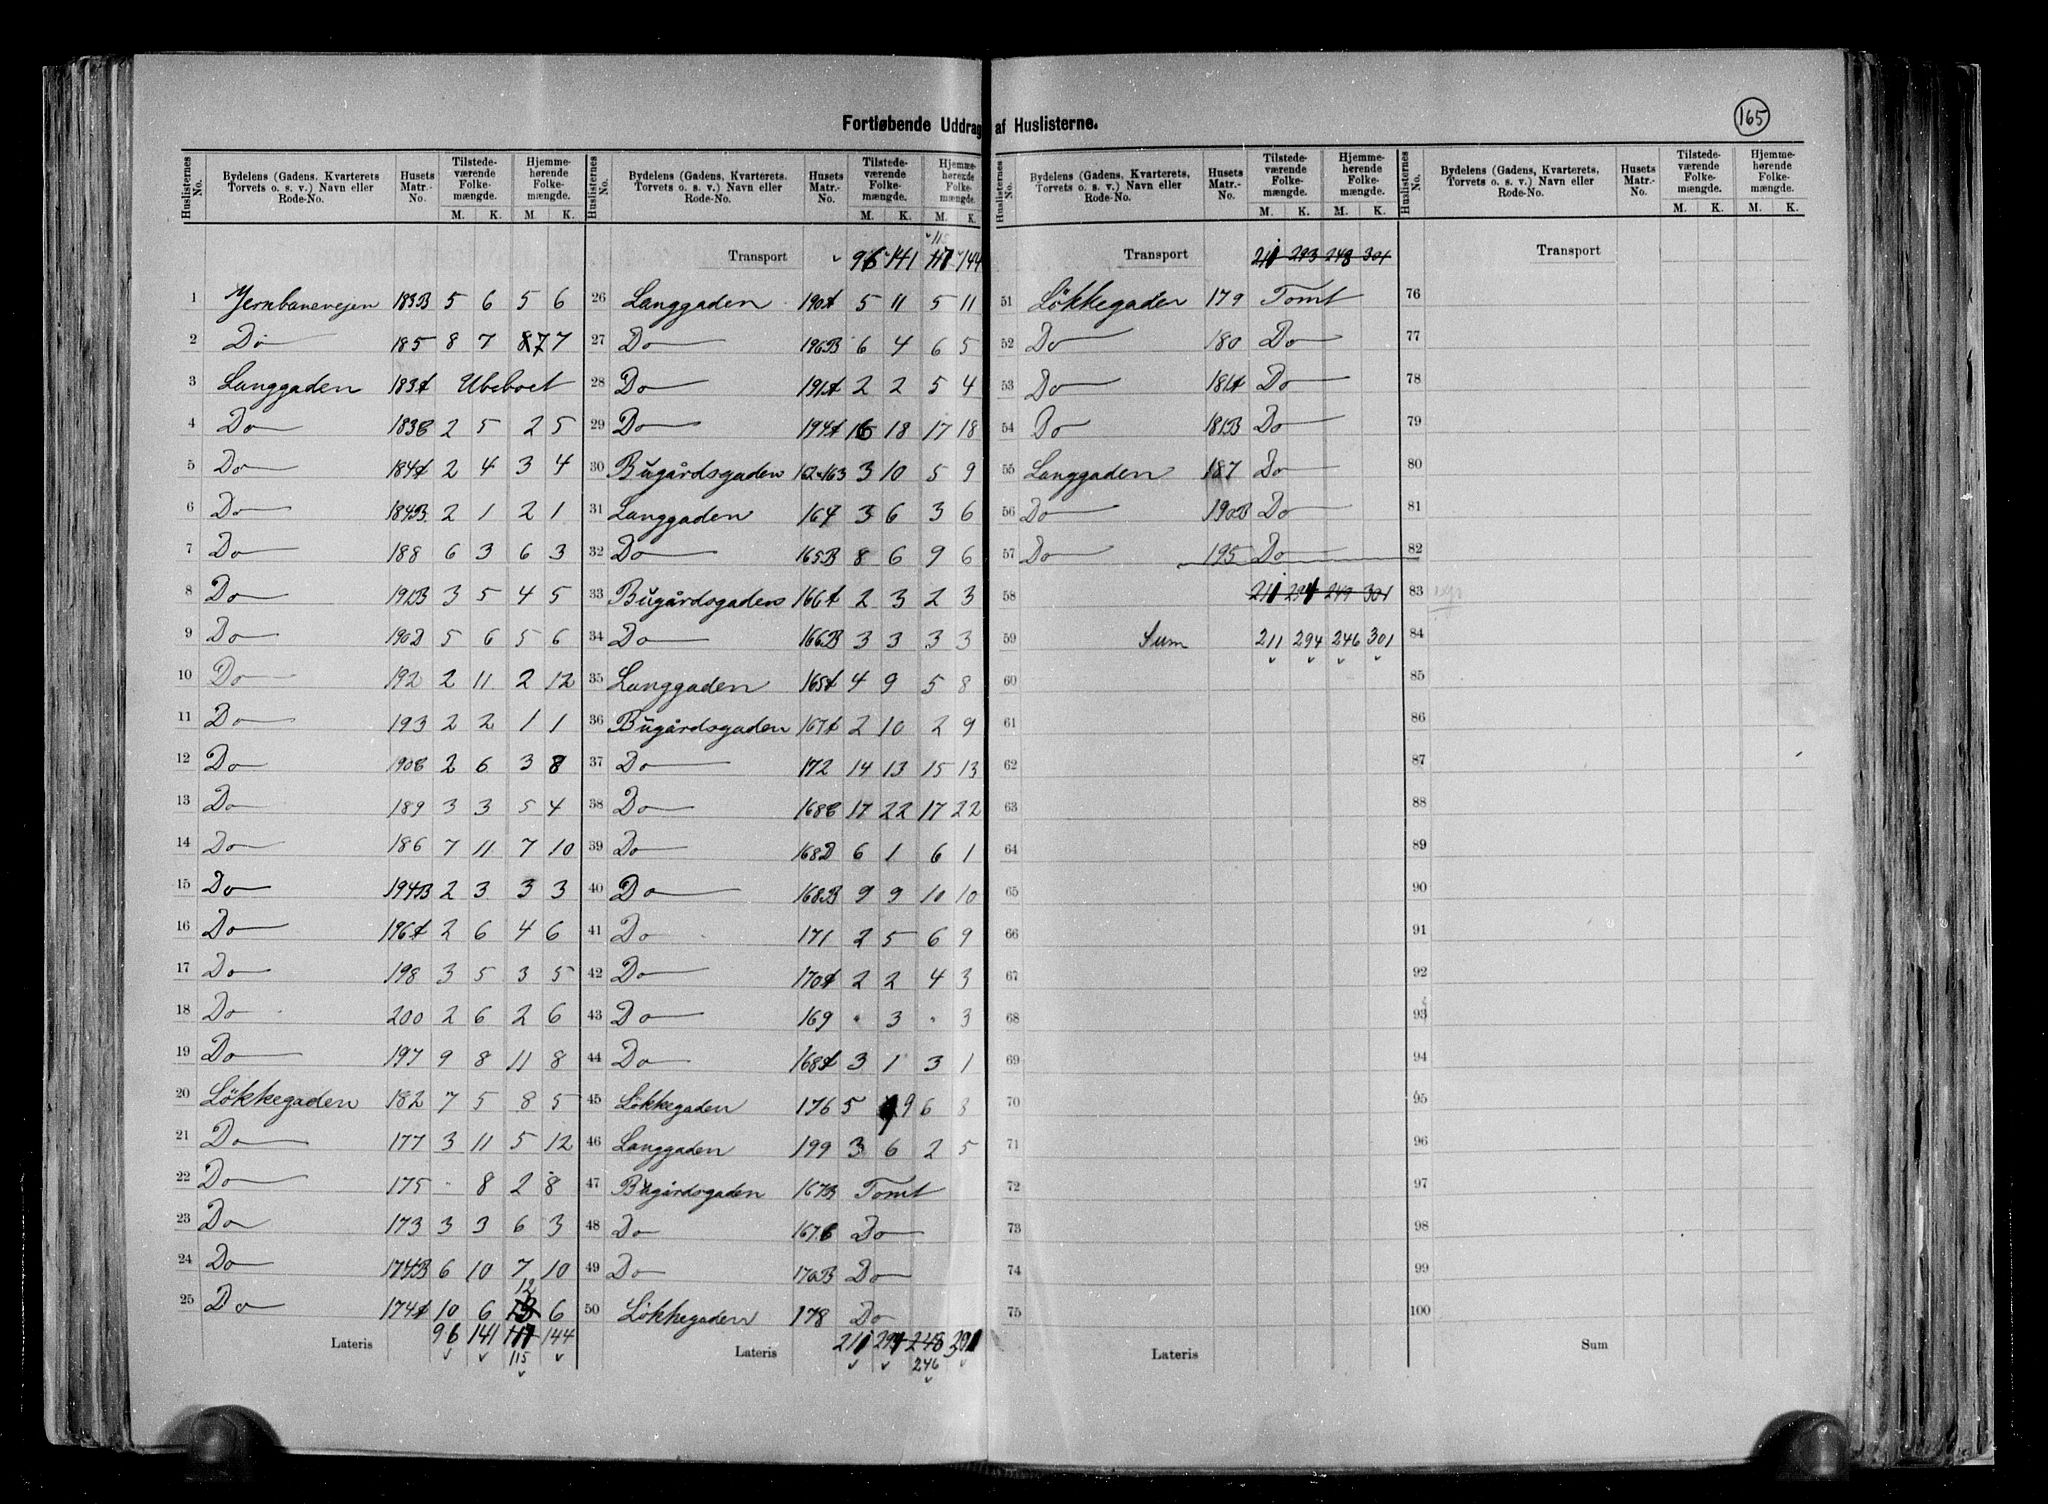 165
Fortløbende Uddrag af Huslisterne.
Huslisternes No. Bydelens (Gadens, Kvarterets, Torvets o. s. v.) Navn eller Rode-No. Husets Matr.-No. Tilstedeværende Folkemængde. M. K. Hjemmehørende Folkemængde. M. K.
1 Jernbanevejen 183B 5 6 5 6
2 Do 185 8 7 7 7
3 Langgaden 183A Ubeboet
4 Do 183C 2 5 2 5
5 Do 184A 2 4 3 4
6 Do 184B 2 1 2 1
7 Do 188 6 3 6 3
8 Do 191B 3 5 4 5
9 Do 190D 5 6 5 6
10 Do 192 2 11 2 12
11 Do 193 2 2 1 1
12 Do 190C 2 6 3 8
13 Do 189 3 3 5 4
14 Do 186 7 11 7 10
15 Do 194B 2 3 3 3
16 Do 196A 2 6 4 6
17 Do 198 3 5 3 5
18 Do 200 2 6 2 6
19 Do 197 9 8 11 8
20 Løkkegaden 182 7 5 8 5
21 Do 177 3 11 5 12
22 Do 175 " 8 2 8
23 Do 173 3 3 6 3
24 Do 174B 6 10 7 10
25 Do 174A 10 6 12 6
Lateris 96 141 117 144
115
Huslisternes No. Bydelens (Gadens, Kvarterets, Torvets o. s. v.) Navn eller Rode-No. Husets Matr.-No. Tilstedeværende Folkemængde. M. K. Hjemmehørende Folkemængde. M. K.
115
Transport 96 141 117 144
26 Langgaden 190A 5 11 5 11
27 Do 196B 6 4 6 5
28 Do 191A 2 2 5 4
29 Do 194A 16 18 17 18
30 Bugårdsgaden 162-163 3 10 5 9
31 Langgaden 164 3 6 3 6
32 Do 165B 8 6 9 6
33 Bugårdsgaden 166A 2 3 2 3
34 Do 166B 3 3 3 3
35 Langgaden 165A 4 9 5 8
36 Bugårdsgaden 167A 2 10 2 9
37 Do 172 14 13 15 13
38 Do 168C 17 22 17 22
39 Do 168D 6 1 6 1
40 Do 168B 9 9 10 10
41 Do 171 2 5 6 9
42 Do 170A 2 2 4 3
43 Do 169 " 3 " 3
44 Do 168A 3 1 3 1
45 Løkkegaden 176 5 9 6 8
46 Langgaden 199 3 6 2 5
47 Bugårdsgaden 167B Tomt
48 Do 167C Do
49 Do 170B Do
50 Løkkegaden 178 Do
Lateris 211 294 248 301
246
Huslisternes No. Bydelens (Gadens, Kvarterets, Torvets o. s. v.) Navn eller Rode-No. Husets Matr.-No. Tilstedeværende Folkemængde. M. K. Hjemmehørende Folkemængde. M. K.
Transport 211 293 248 301
51 Løkkegaden 179 Tomt
52 Do 180 Do
53 Do 181A Do
54 Do 181B Do
55 Langgaden 187 Do
56 Do 190B Do
57 Do 195 Do
58 211 294 249 301
59 Sum 211 294 246 301
60
61
62
63
64
65
66
67
68
69
70
71
72
73
74
75
Lateris
Huslisternes No. Bydelens (Gadens, Kvarterets, Torvets o. s. v.) Navn eller Rode-No. Husets Matr.-No. Tilstedeværende Folkemængde. M. K. Hjemmehørende Folkemængde. M. K.
Transport
76
77
78
79
80
81
82
83
84
85
86
87
88
89
90
91
92
93
94
95
96
97
98
99
100
Sum